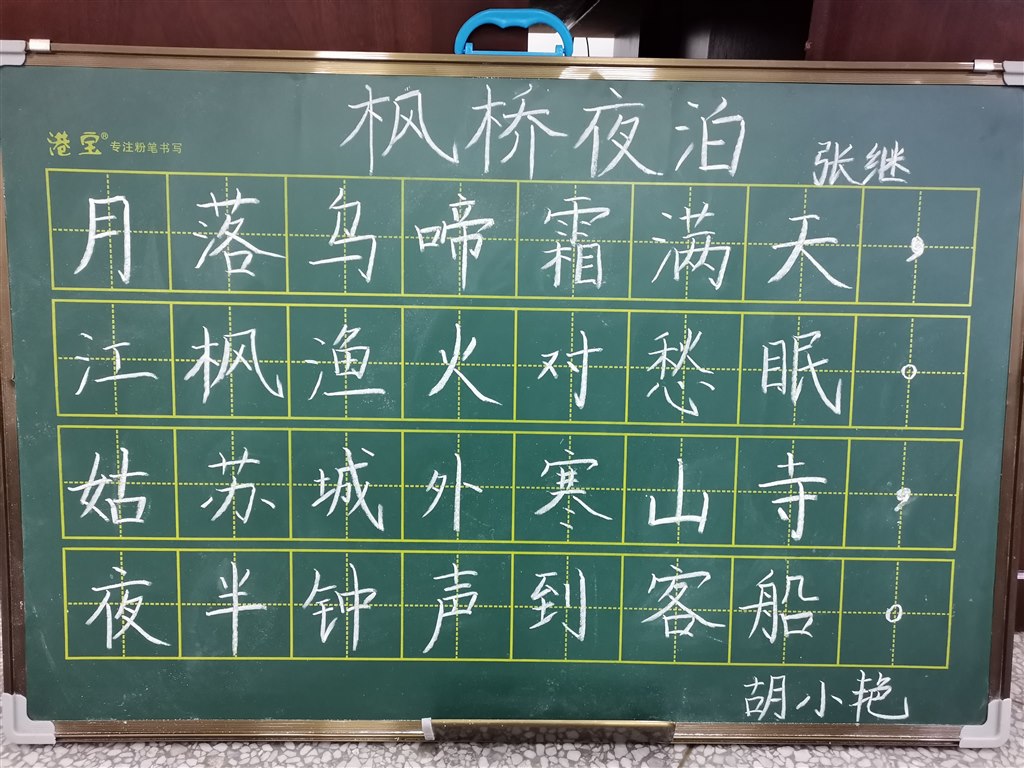 枫桥夜泊
港宝® 专注粉笔书写
张继
月落乌啼霜满天，
江枫渔火对愁眠。
姑苏城外寒山寺，
夜半钟声到客船。
胡小艳